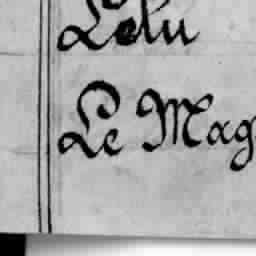 Lelu
Le Mag